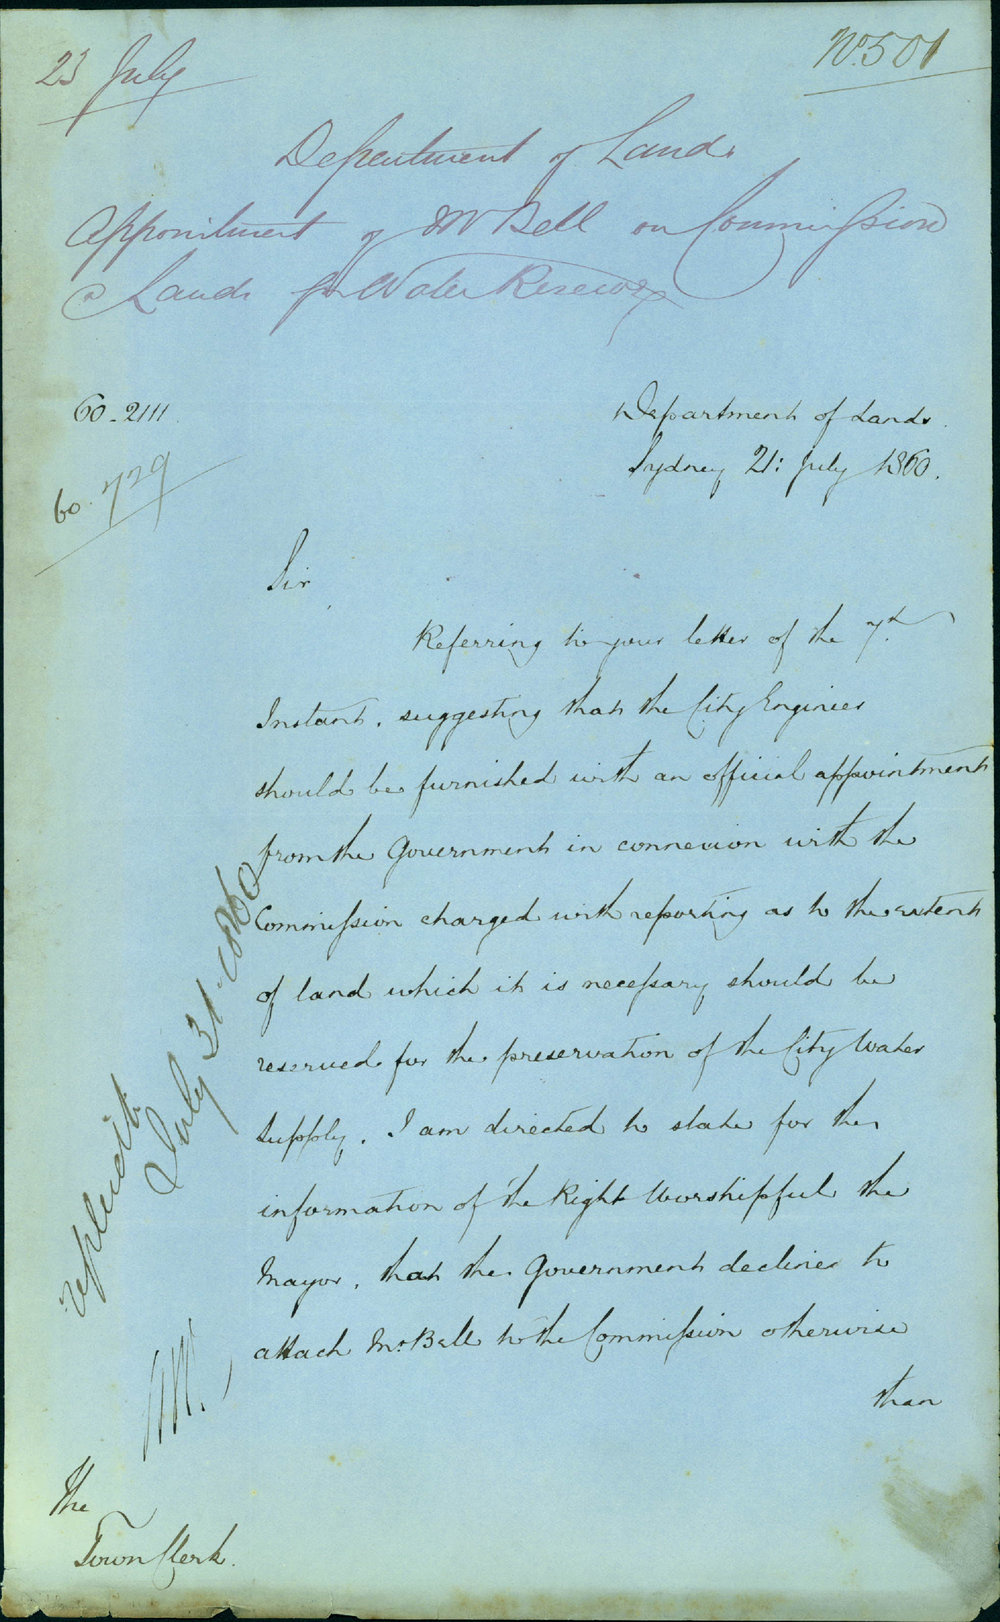 23 July
No 501
Department of Lands
Appointment of Mr Bell on Commission
a Lands for Water Reserve
60-2111
Department of Lands.
Sydney 21: July 1860.
60.729
Sir,
Referring to your letter of the 7th
Instant, suggesting that the City Engineer
should be furnished with an official appointment
from the Government in connexion with the
Commission charged with reporting as to the extent
of land which it is necessary should be
reserved for the preservation of the City Water
Supply, I am directed to state for the
information of the Right Worshipful the
Mayor, that the Government declines to
attach Mr. Bell to the Commission otherwise
than
July 31-1860
The
Town Clerk.